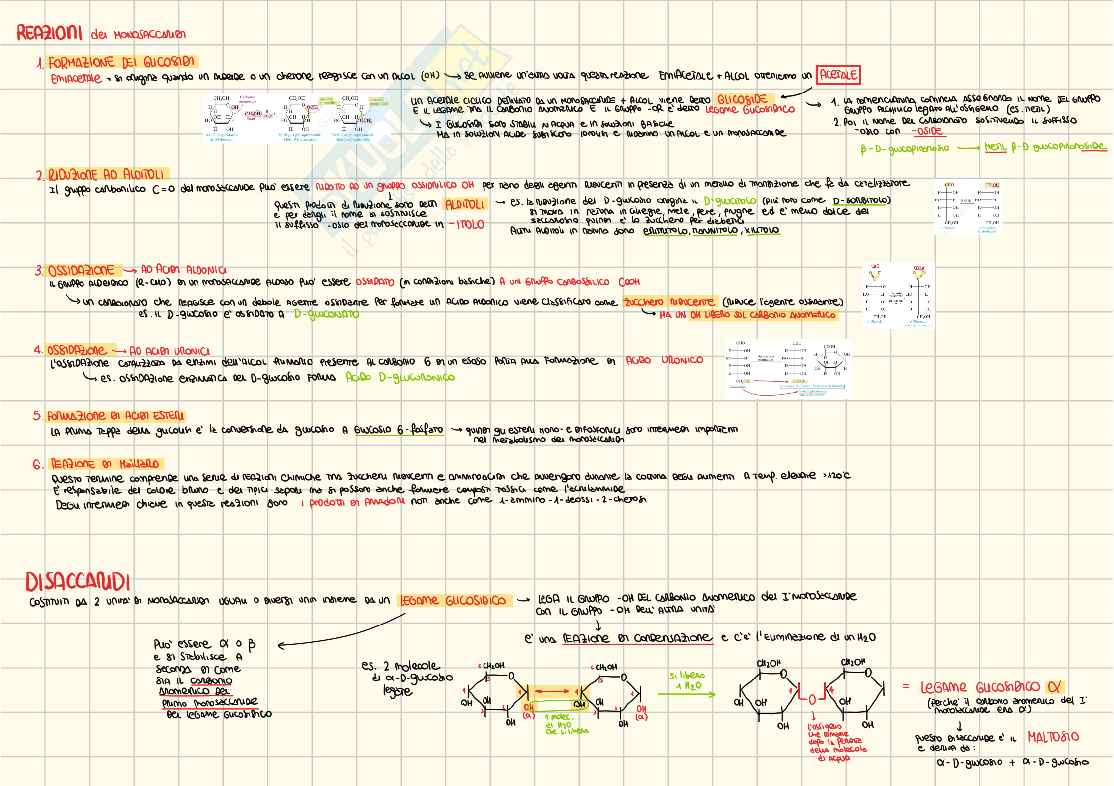 REAZIONI dei MONOSACCARIDI
1. FORMAZIONE DEI GLICOSIDI
EMIACETALE → si origina quando un aldeide o un chetone reagisce con un alcol (OH) → se avviene un'altra volta questa reazione EMIACETALE + ALCOL otteniamo un ACETALE
UN ACETALE CICLICO DERIVATO DA UN MONOSACCARIDE + ALCOL VIENE DETTO GLICOSIDE
E IL LEGAME TRA IL CARBONIO ANOMERICO E IL GRUPPO -OR È DETTO LEGAME GLICOSIDICO
→ I GLICOSIDI SONO STABILI IN ACQUA E IN SOLUZIONI BASICHE
MA IN SOLUZIONI ACIDE SUBISCONO IDROLISI E DANNO UN ALCOL E UN MONOSACCARIDE
→ 1. LA NOMENCLATURA COMINCIA ASSEGNANDO IL NOME DEL GRUPPO
ALCHILICO LEGATO ALL'OSSIGENO (ES. METIL)
2. POI IL NOME DEL CARBOIDRATO SOSTITUENDO IL SUFFISSO
-OSIO CON -OSIDE
β-D-glucopiranosio → METIL β-D glucopiranoside
2. RIDUZIONE AD ALDITOLI
Il gruppo carbonilico C=O del monosaccaride può essere RIDOTTO AD UN GRUPPO OSSIDRILICO OH per mano degli agenti riducenti in presenza di un metallo di transizione che fa da catalizzatore
Questi prodotti di riduzione sono detti ALDITOLI
e per dargli il nome si sostituisce
il suffisso -osio del monosaccaride in -ITOLO
→ es. la riduzione del D-glucosio origina il D-glucitolo (più noto come D-SORBITOLO)
si trova in natura in ciliegie, mele, pere, prugne ed è meno dolce del
saccarosio quindi è lo zucchero per diabetici
Altri alditoli in natura sono ERITRITOLO, MANNITOLO, XILITOLO
3. OSSIDAZIONE → AD ACIDI ALDONICI
IL GRUPPO ALDEIDICO (R-CHO) DI UN MONOSACCARIDE ALDOSO PUO' ESSERE OSSIDATO (in condizioni basiche) A UN GRUPPO CARBOSSILICO COOH
→ un carboidrato che reagisce con un debole agente ossidante per formare un acido aldonico viene classificato come ZUCCHERO RIDUCENTE (riduce l'agente ossidante)
es. il D-glucosio è ossidato a D-GLUCONATO
→ HA UN OH LIBERO SUL CARBONIO ANOMERICO
4. OSSIDAZIONE → AD ACIDI URONICI
L'ossidazione catalizzata da enzimi dell'alcol primario presente al carbonio 6 di un esoso porta alla formazione di ACIDO URONICO
→ es. ossidazione enzimatica del D-glucosio forma ACIDO D-GLUCURONICO
5. FORMAZIONE DI ACIDI ESTERI
LA PRIMA TAPPA DELLA GLICOLISI E' LA CONVERSIONE DA GLUCOSIO A GLUCOSIO 6-FOSFATO → QUINDI GLI ESTERI MONO- E DIFOSFORICI SONO INTERMEDI IMPORTANTI
NEL METABOLISMO DEI MONOSACCARIDI
6. REAZIONE DI MAILLARD
Questo termine comprende una serie di reazioni chimiche tra zuccheri riducenti e amminoacidi che avvengono durante la cottura degli alimenti a temp. elevate >120°C
E' responsabile del colore bruno e dei tipici sapori ma si possono anche formare composti tossici come l'acrilammide
Degli intermedi chiave in queste reazioni sono i prodotti di Amadori noti anche come 1-ammino-1-deossi-2-chetosi
DISACCARIDI
COSTITUITI DA 2 UNITA' DI MONOSACCARIDI UGUALI O DIVERSI UNITI INSIEME DA UN LEGAME GLICOSIDICO → LEGA IL GRUPPO -OH DEL CARBONIO ANOMERICO DEL I° MONOSACCARIDE
CON IL GRUPPO -OH DELL'ALTRA UNITA'
è una REAZIONE DI CONDENSAZIONE e c'è l'eliminazione di un H2O
Può essere α o β
e si stabilisce a
seconda di come
sia il carbonio
anomerico del
primo monosaccaride
del legame glicosidico
es. 2 molecole
di α-D-glucosio
legate
CH2OH
CH2OH
OH
OH
OH
(α)
OH
OH
OH
OH
(α)
1 molec.
di H2O
che si libera
si libera
1 H2O
CH2OH
CH2OH
1
4
O
OH
OH
OH
OH
l'ossigeno
che rimane
dopo la perdita
della molecola
di acqua
= LEGAME GLICOSIDICO α
(perché il carbonio anomerico del I°
monosaccaride era α)
questo disaccaride è il MALTOSIO
e deriva da:
α-D-glucosio + α-D-glucosio